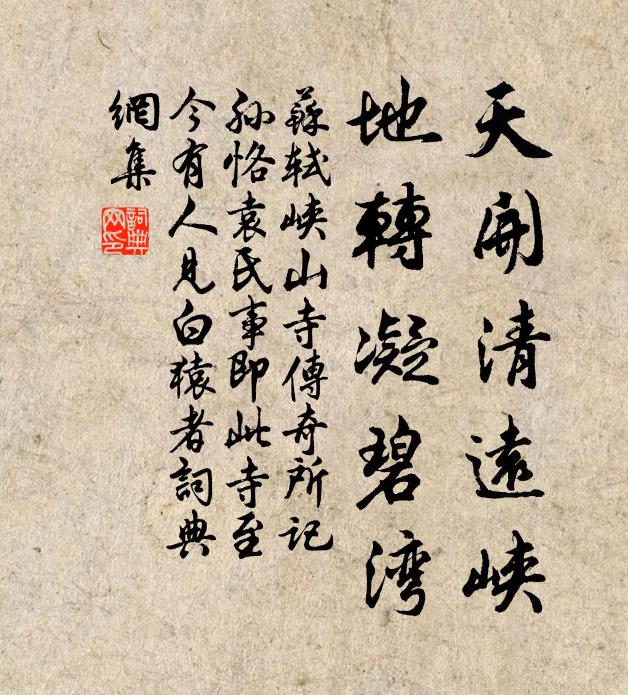 天開清遠峽
地轉凝碧湾
蘇軾峽山寺傳奇所記
孫恪袁氏事即此寺至
今有人見白猿者詞典
網集
詞典
网印